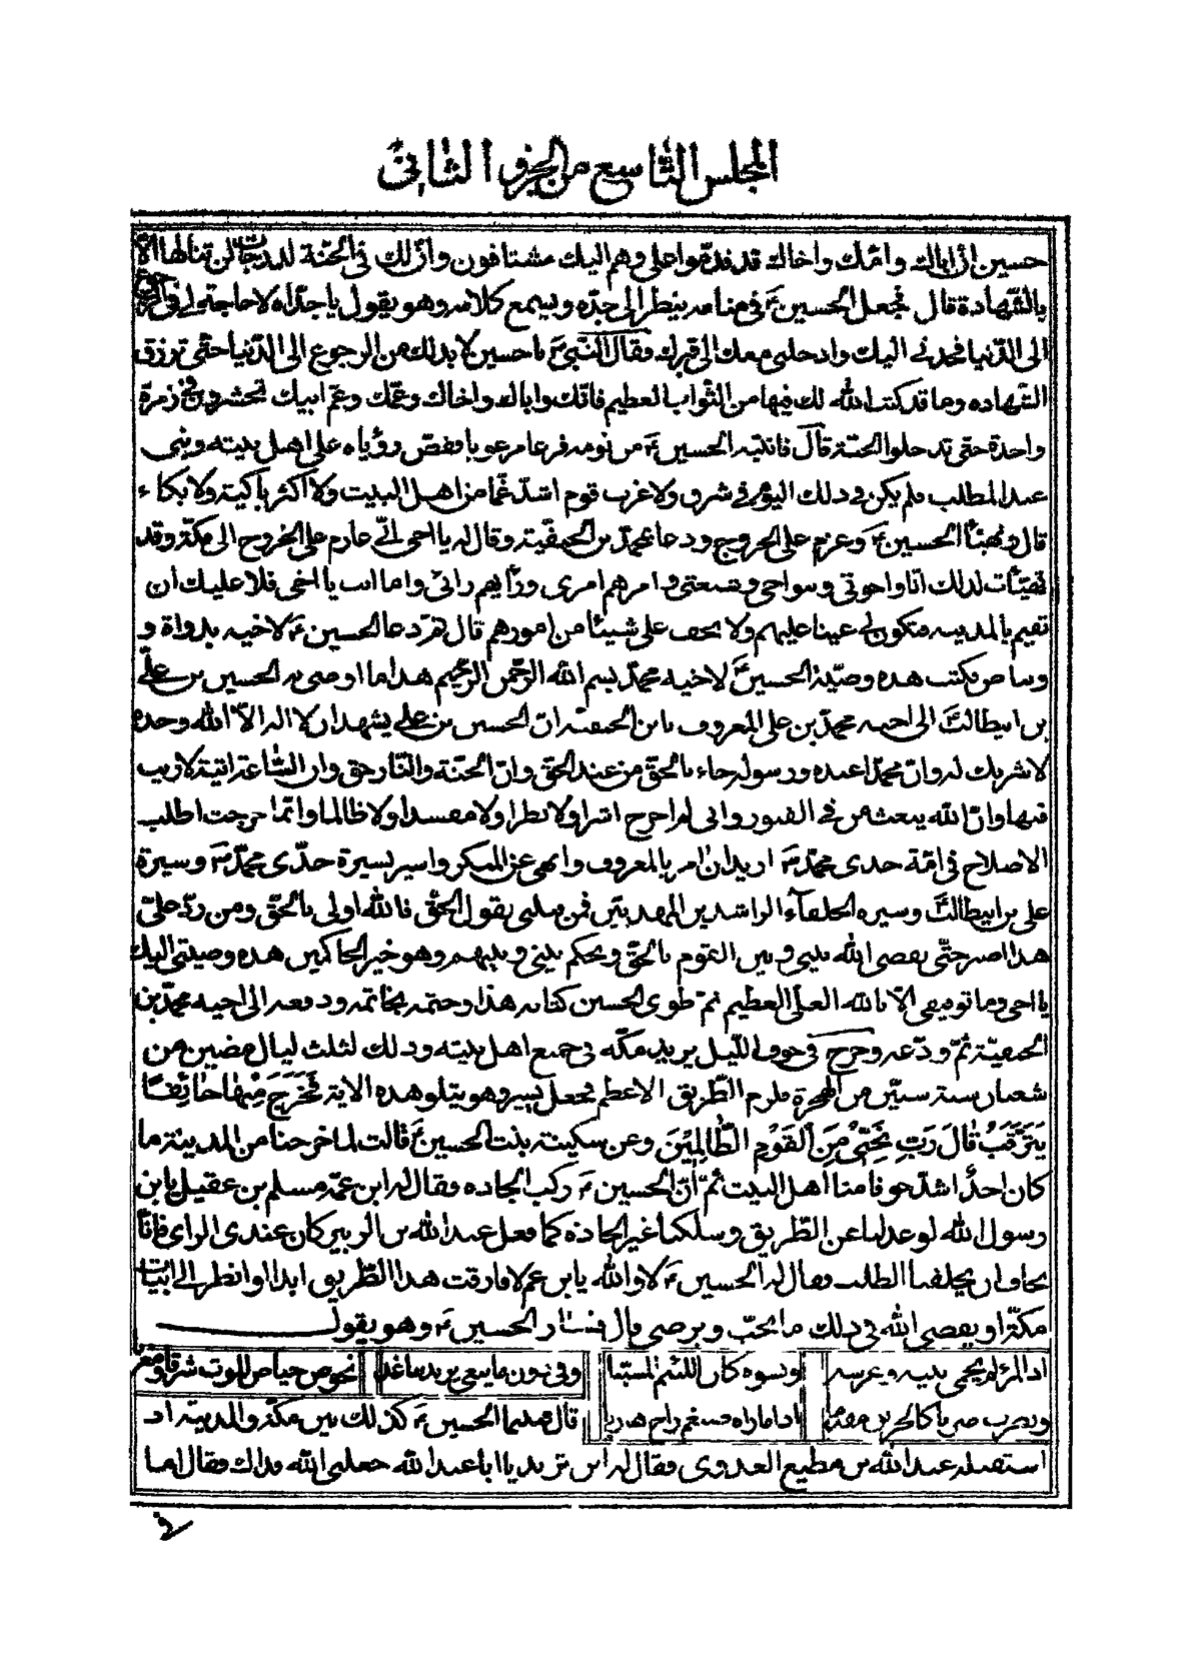 المجلس التاسع من الجزو الثاني
حسين ان اباك وامك واخاك قد قدموا علي وهم اليك مشتاقون وان لك في الجنة لدرجات لن تنالها الا
بالشهادة قال فجعل الحسين ع في منامه ينظر الى جده ويسمع كلامه وهو يقول يا جداه لا حاجة لي في الرجوع
الى الدنيا فخذني اليك وادخلني معك الى قبرك فقال النبي ص يا حسين لا بد لك من الرجوع الى الدنيا حتى ترزق
الشهاده وما قد كتب الله لك فيها من الثواب العظيم فانك واباك واخاك وعمك وعم ابيك تحشرون في زمرة
واحدة حتى تدخلوا الجنة قال فانتبه الحسين ع من نومه فزعا مرعوبا فقص رؤياه على اهل بيته وبني
عبد المطلب فلم يكن في ذلك اليوم في شرق ولا غرب قوم اشد غما من اهل البيت ولا اكثر باكية ولا بكاء
قال وتهيأ الحسين ع وعزم على الخروج ودعا محمد بن الحنفية وقال له يا اخي اني عازم على الخروج الى مكة وقد
تهيأت لذلك انا واخوتي وبنو اخي وشيعتي وامرهم امري ورأيهم رائي واما انت يا اخي فلا عليك ان
تقيم بالمدينه فتكون لي عينا عليهم ولا تخف علي شيئا من امورهم قال ثم دعا الحسين ع لاخيه بدواة و
بياض فكتب هذه وصية الحسين ع لاخيه محمد بسم الله الرحمن الرحيم هذا ما اوصى به الحسين بن علي
بن ابيطالب الى اخيه محمد بن علي المعروف بابن الحنفية ان الحسين بن علي يشهد ان لا اله الا الله وحده
لا شريك له وان محمدا عبده ورسوله جاء بالحق من عند الحق وان الجنة والنار حق وان الساعة اتية لا ريب
فيها وان الله يبعث من في القبور واني لم اخرج اشرا ولا بطرا ولا مفسدا ولا ظالما وانما خرجت اطلب
الاصلاح في امة جدي محمد ص اريد ان امر بالمعروف وانهى عن المنكر واسير بسيرة جدي محمد ص وسيرة
علي بن ابيطالب وسيره الخلفاء الراشدين المهديين فمن قبلني بقبول الحق فالله اولى بالحق ومن رد علي
هذا اصبر حتى يقضي الله بيني وبين القوم بالحق ويحكم بيني وبينهم وهو خير الحاكمين هذه وصيتي اليك
يا اخي وما توفيقي الا بالله العلي العظيم ثم طوى الحسين كتابه هذا وختمه بخاتمه ودفعه الى اخيه محمد بن
الحنفية ثم ودعه وخرج في جوف الليل يريد مكه في جميع اهل بيته وذلك لثلث ليال مضين من
شعبان سنة ستين من الهجرة فلزم الطريق الاعظم فجعل يسير وهو يتلو هذه الاية فَخَرَجَ مِنْهَا خَائِفًا
يَتَرَقَّبُ قَالَ رَبِّ نَجِّنِي مِنَ الْقَوْمِ الظَّالِمِينَ وعن سكينة بنت الحسين ع قالت لما خرجنا من المدينة ما
كان احد اشد خوفا منا اهل البيت ثم ان الحسين ع ركب الجاده فقال له ابن عمه مسلم بن عقيل يا بن
رسول الله لو عدلنا عن الطريق وسلكنا غير الجادة كما فعل عبد الله بن الزبير كان عندي الراي فانا
نخاف ان يلحقنا الطلب فقال له الحسين ع لا والله يا بن عم لا فارقت هذا الطريق ابدا او انظر الى ابيات
مكة او يقضي الله في ذلك ما يحب ويرضى قال فسار الحسين ع وهو يقول
اذا المرء لم يحمي بنيه وعرسه ونسوه كان اللئيم المسببا وفي دون ما يبغي يزيد بنا غدا نخوض حياض الموت شرقا ومغربا
ويضرب ضربا كالحريق اذا ما راه ضيغم راح هاربا قال فبينما الحسين ع كذلك بين مكة والمدينة اذ
استقبله عبد الله بن مطيع العدوي فقال له اين تريد يا ابا عبد الله جعلني الله فداك فقال اما